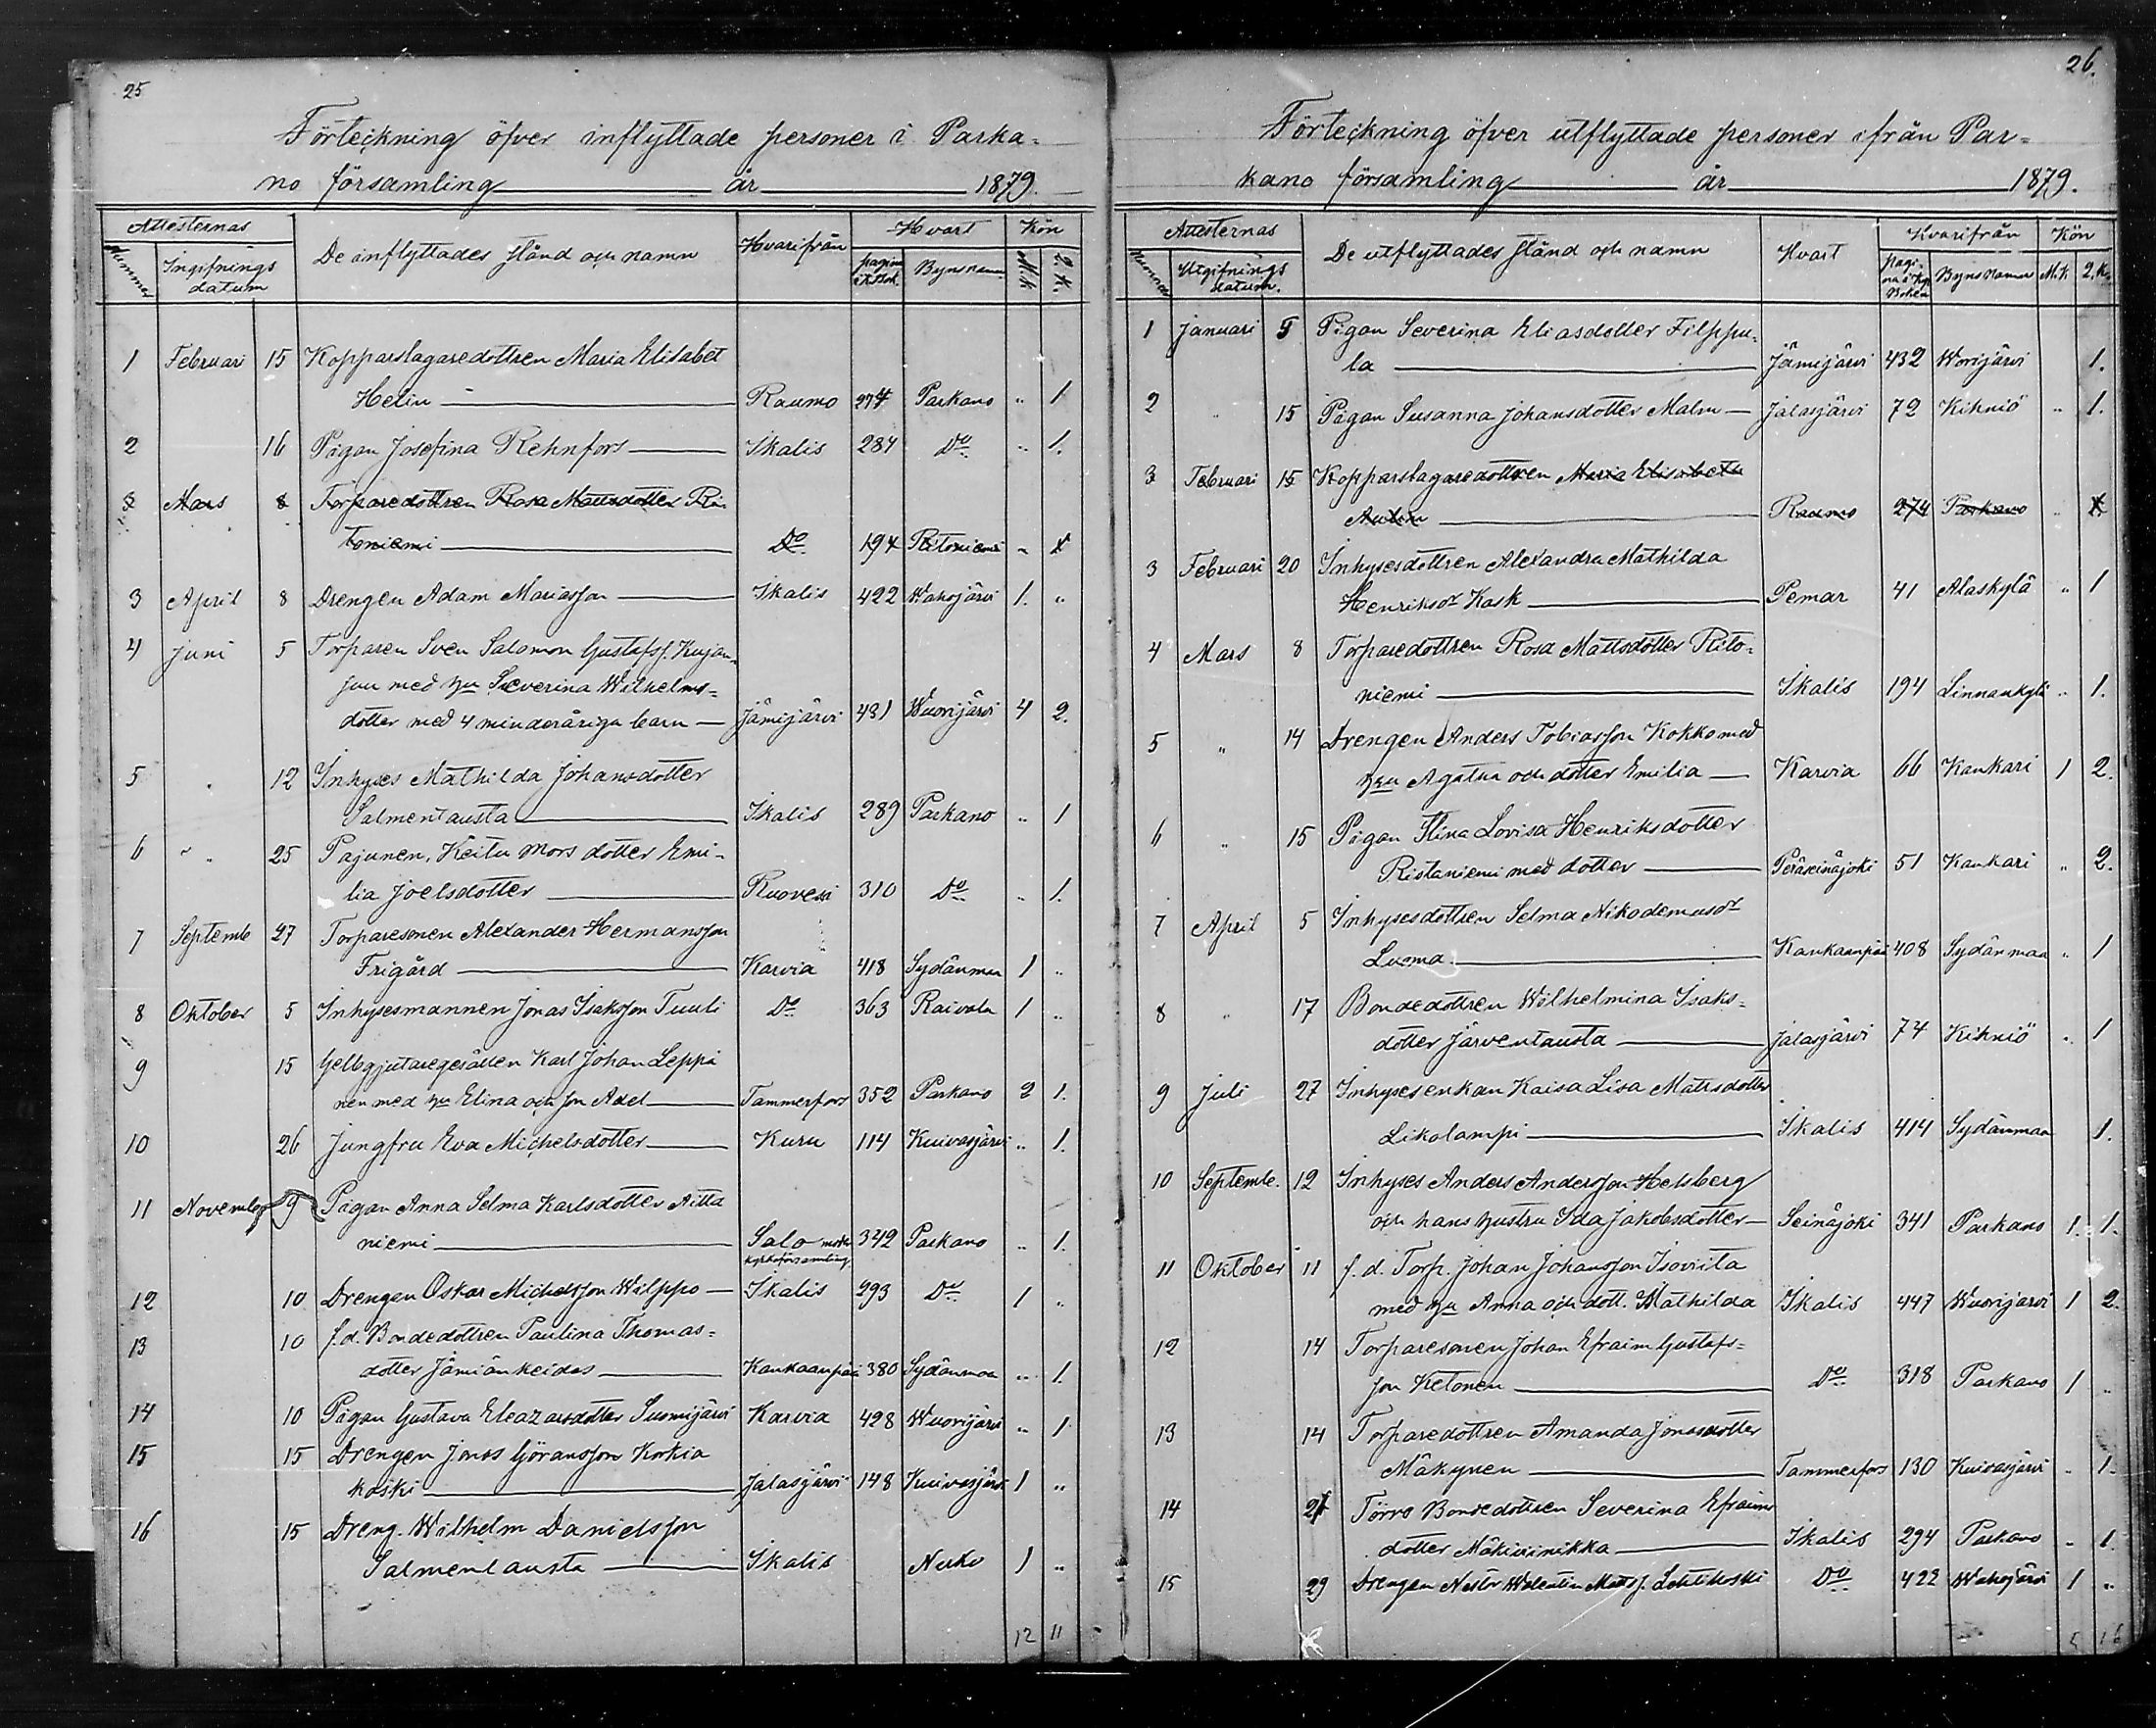 25
Förteckning öfver inflyttade personer i Parka-
no församling år 1879.
Attesternas
Nummer
Ingifnings
datum
De inflyttades stånd och namn
Hvarifrån
Hvart
pagina
Byns namn
Kön
M.k.
Q.k.
1 Februari 15 Kopparslagaredottren Maria Elisabet
Helin Raumo 274 Parkano " 1
2 16 Pigan Josefina Rehnfors Ikalis 284 Do " 1.
3 Mars 8 Torparedottren Rosa Mattsdotter Ri-
toniemi Do 194 Ritoniemi " 1
3 April 8 Drengen Adam Mariasson Ikalis 422 Wahojärvi 1. "
4 Juni 5 Torparen Sven Salomon Gustafss. Kujan-
suu med hu Severina Wilhelms-
dotter med 4 minderåriga barn Jämijärvi 431 Wuorijärvi 4 2.
5 " 12 Inhyses Mathilda Johansdotter
Salmentausta Ikalis 289 Parkano " 1
6 " 25 Pajunen, Keitu mors dotter Emi-
lia Joelsdotter Ruovesi 310 Do " 1.
7 Septemb 27 Torparesonen Alexander Hermansson
Frigård Karvia 418 Sydänmaa 1 "
8 Oktober 5 Inhysesmannen Jonas Isaksson Tuuli Do 363 Raivala 1 "
9 15 Gelbgjutaregesällen Karl Johan Leppä
nen med hu Elina och son Axel Tammerfors 352 Parkano 2 1.
10 26 Jungfru Eva Michelsdotter Kuru 114 Kuivasjärvi " 1.
11 November 9 Pigan Anna Selma Karlsdotter Aitta
niemi Salo moder 342 Parkano " 1.
kyrkoförsamling
12 10 Drengen Oskar Michelsson Wilppo Ikalis 293 Do 1 "
13 10 f.d. Bondedottren Paulina Thomas-
dotter Jämiänkeidas Kankaanpää 380 Sydänmaa " 1.
14 10 Pigan Gustava Eleazarsdotter Suomijärvi Karvia 428 Wuorijärvi " 1
15 15 Drengen Jonas Göransson Korkia
koski Jalasjärvi 148 Kuivasjärvi 1 "
16 15 Dreng. Wilhelm Danielsson
Salmentausta Ikalis Nerko 1 "
12 11
26.
Förteckning öfver utflyttade personer ifrån Par-
kano församling år 1879.
Attesternas
Nummer
Utgifnings
datum.
De utflyttades stånd och namn
Hvart
Hvarifrån
pagi-
na i Kyr
Boken
Byns Namn
Kön
M.k.
Q.k.
1 Januari 5 Pigan Severina Eliasdotter Filppu-
la Jämijärvi 432 Worijärvi 1.
2 " 15 Pigan Susanna Johansdotter Malm Jalasjärvi 72 Kihniö " 1.
3 Februari 15 Kopparslagaredottren Maria Elisabeta
Raumo 274 Parkano " 1.
3 Februari 20 Inhysesdottren Alexandra Mathilda
Henriksdr Kask Pemar 41 Alaskylä " 1
4 Mars 8 Torparedottren Rosa Mattsdotter Rito-
niemi Ikalis 194 Linnankylä " 1.
5 " 14 Drengen Anders Tobiasson Kokko med
hu Agatha och dotter Emilia Karvia 66 Kankari 1 2.
6 " 15 Pigan Stina Lovisa Henriksdotter
Ristaniemi med dotter Peräseinäjoki 51 Kankari " 2.
7 April 5 Inhysesdottren Selma Nikodemusdr
Luoma Kankaanpää 408 Sydänmaa " 1
8 " 17 Bondedottren Wilhelmina Isaks-
dotter Järventausta Jalasjärvi 74 Kihniö " 1
9 Juli 27 Inhysesenkan Kaisa Lisa Mattsdotter
Likolampi Ikalis 414 Sydänmaa 1.
10 Septemb. 12 Inhyses Anders Andersson Helsberg
och hans hustru Ida Jakobsdotter Seinäjoki 341 Parkano 1. 1.
11 Oktober 11 f.d. Torp. Johan Johansson Isoviita
med hu Anna och dott. Mathilda Ikalis 447 Wuorijärvi 1 2.
12 14 Torparesonen Johan Efraim Gustafs-
son Ketonen Do 318 Parkano 1 "
13 14 Torparedottren Amanda Jonasdotter
Mäkynen Tammerfors 130 Kuivasjärvi " 1.
14 Torro Bondedottren Severina Efraims
dotter Mäkivinikka Ikalis 294 Parkano " 1.
15 29 Drengen Nestor Walentin Matts s. Lehtikoski Do 422 Wahojärvi 1 "
5 16